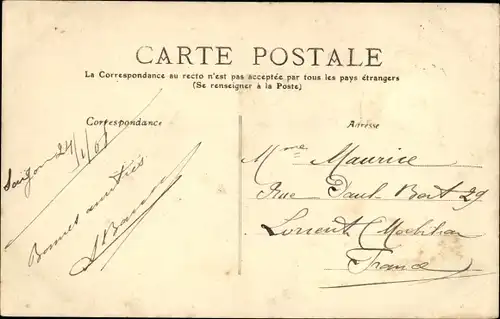 CARTE POSTALE
La Correspondance au recto n'est pas acceptée par tous les pays étrangers
(Se renseigner à la Poste)
Correspondance
Saïgon 24/1/07
Bonnes amitiés
Adresse
Mme Maurice
Rue Paul Bert 29
Lorient (Morbihan
France